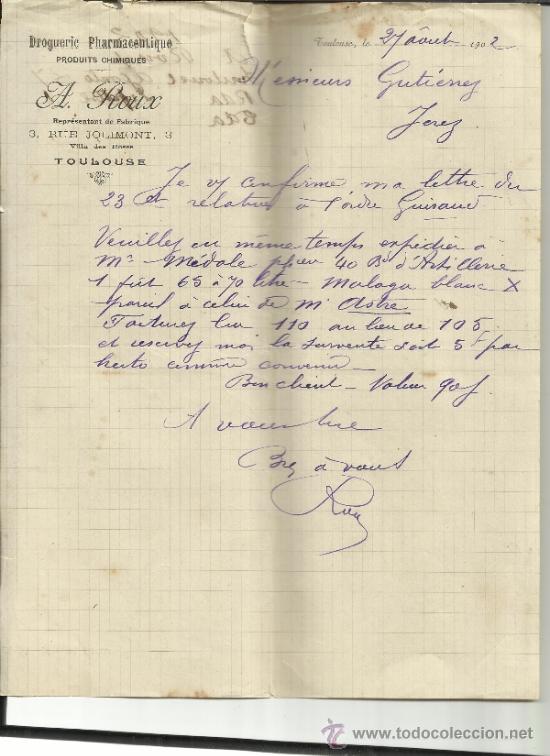 Droguerie Pharmaceutique
PRODUITS CHIMIQUES
A. Roux
Représentant de Fabrique
3, RUE JOLIMONT, 3
Villa des
TOULOUSE
Toulouse, le 27 août 1902
Messieurs Gutiérrez
Jerez
Je vs confirme ma lettre du
23 ct relative à l'ordre Guiraud
Veuillez en même temps expédier à
Mr Médale 40 Bd d'Artillerie
1 fût 65 à 70 litres - Malaga blanc X
pareil à celui de Mr Astre
Facturez lui 110 au lieu de 105
et reservez moi la survente soit 5f par
hecto comme convenu -
Bon client - Valeur 90j
A vous lire
Bien à vous
Roux
www.todocoleccion.net